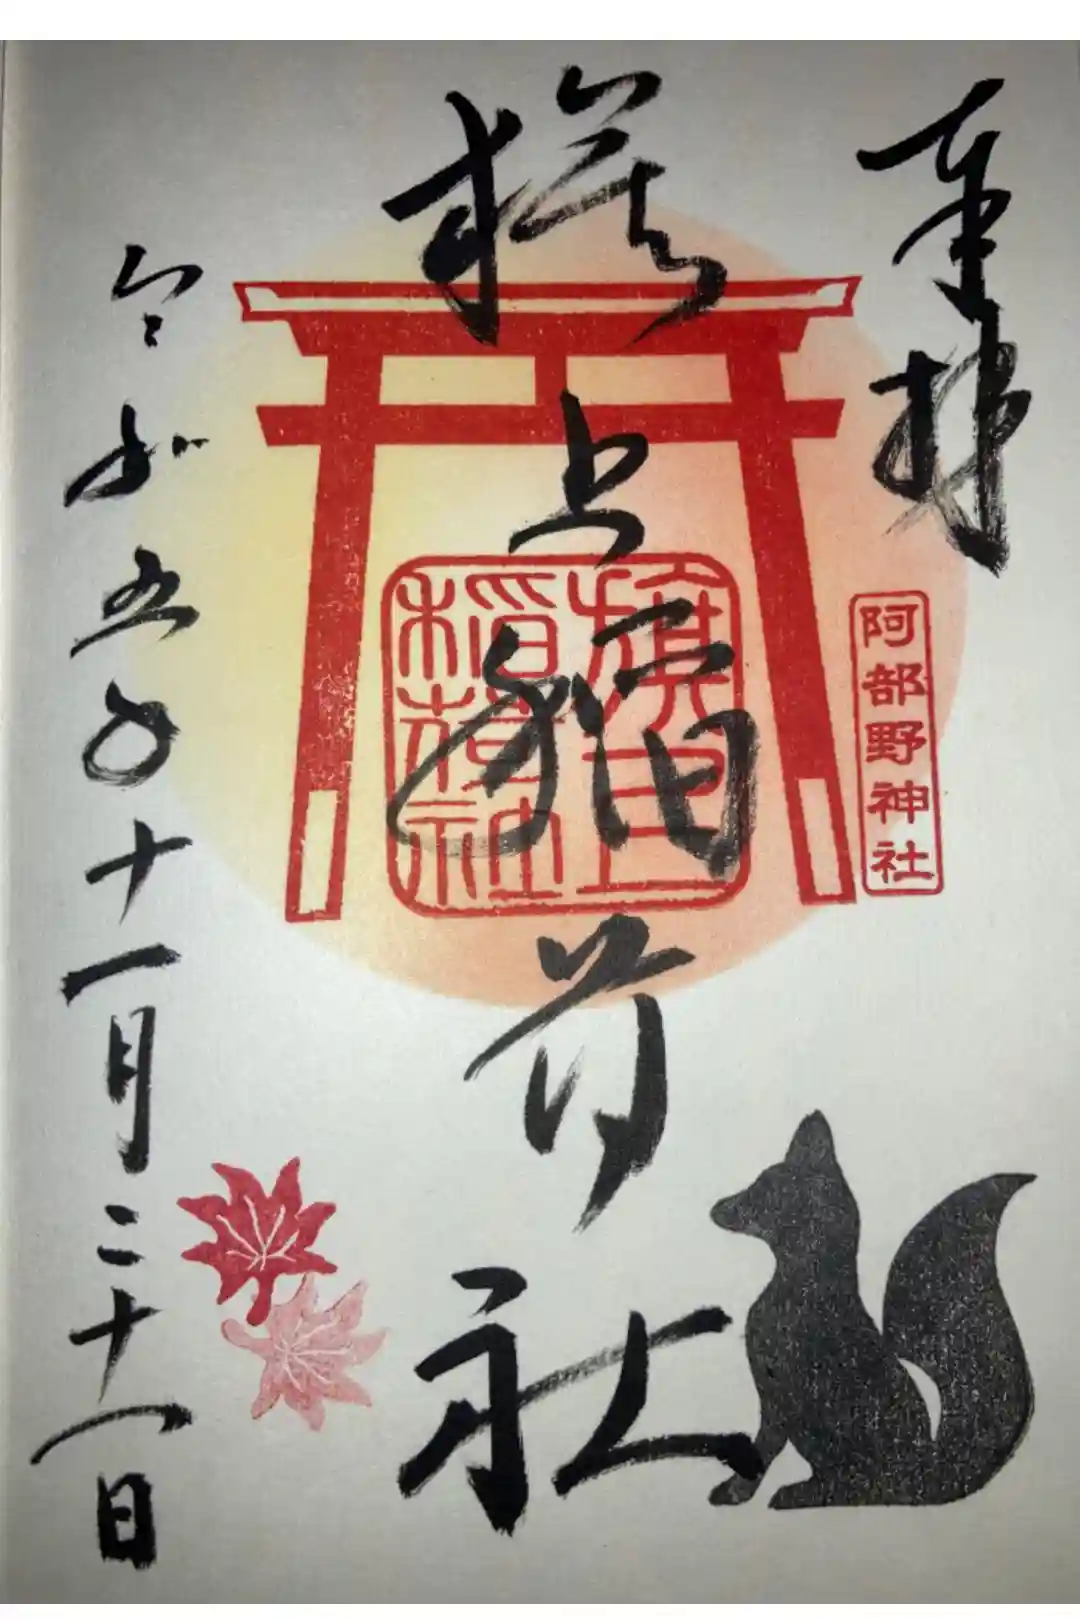 奉拝
阿部野神社
旗上稲荷社
旗上
稲荷社
令和五年十一月二十一日